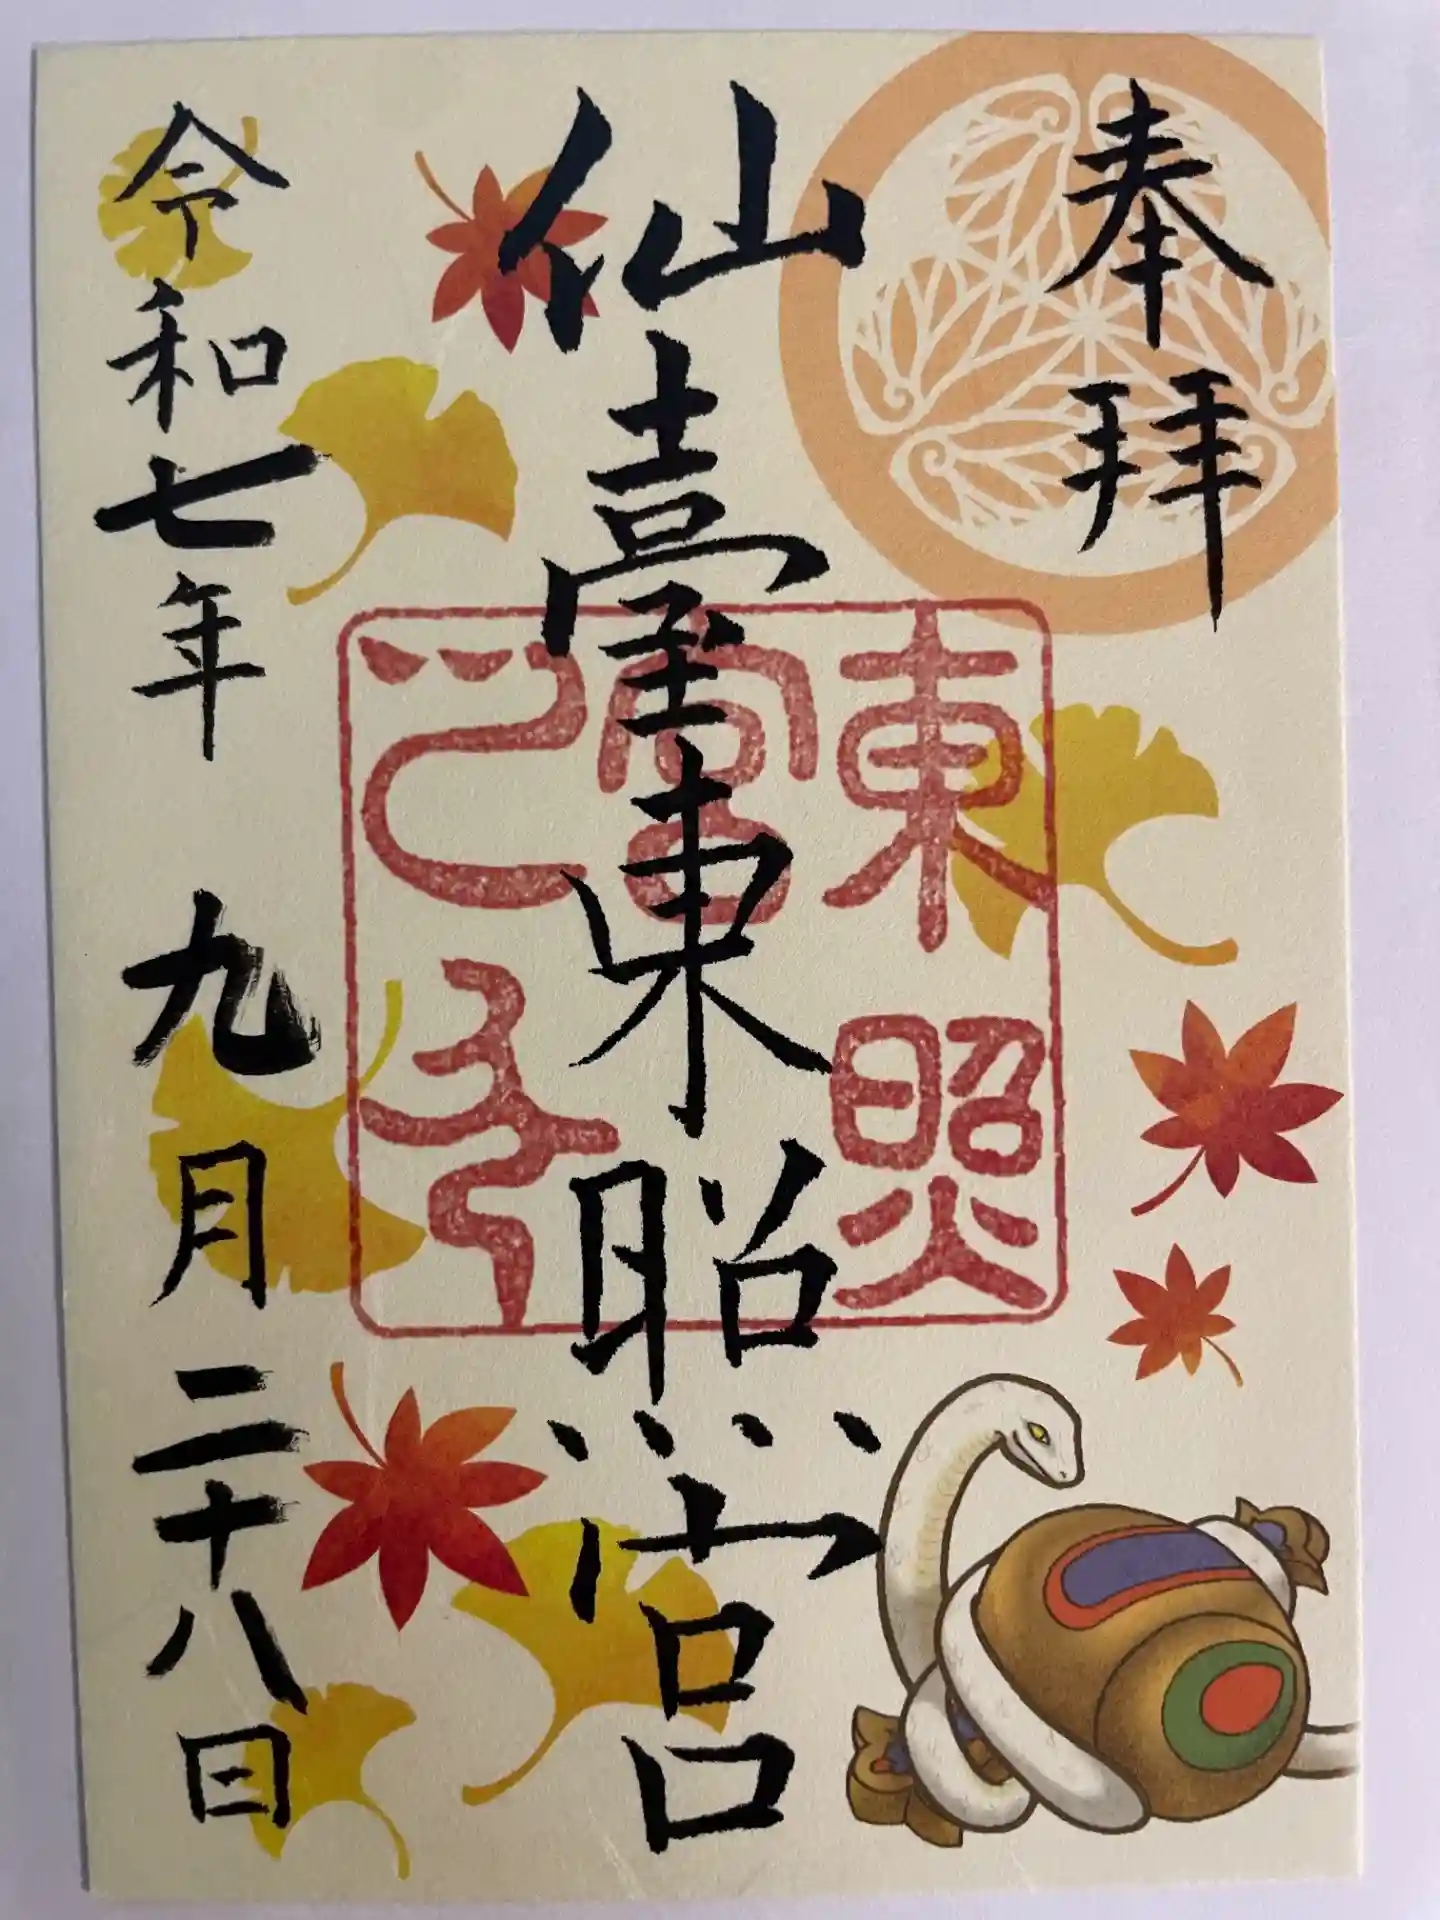 奉拝
仙臺東照宮
東照
宮
令和七年 九月二十八日